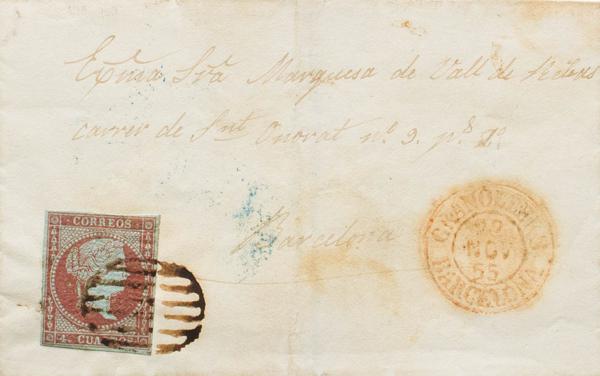 Exma Sra Marquesa de Vall de
carrer de Snt Onorat nº 9. ps 1º
Barcelona
CORREOS
4 CUARTOS
GRANOLLERS
20
NOV
55
BARCELONA